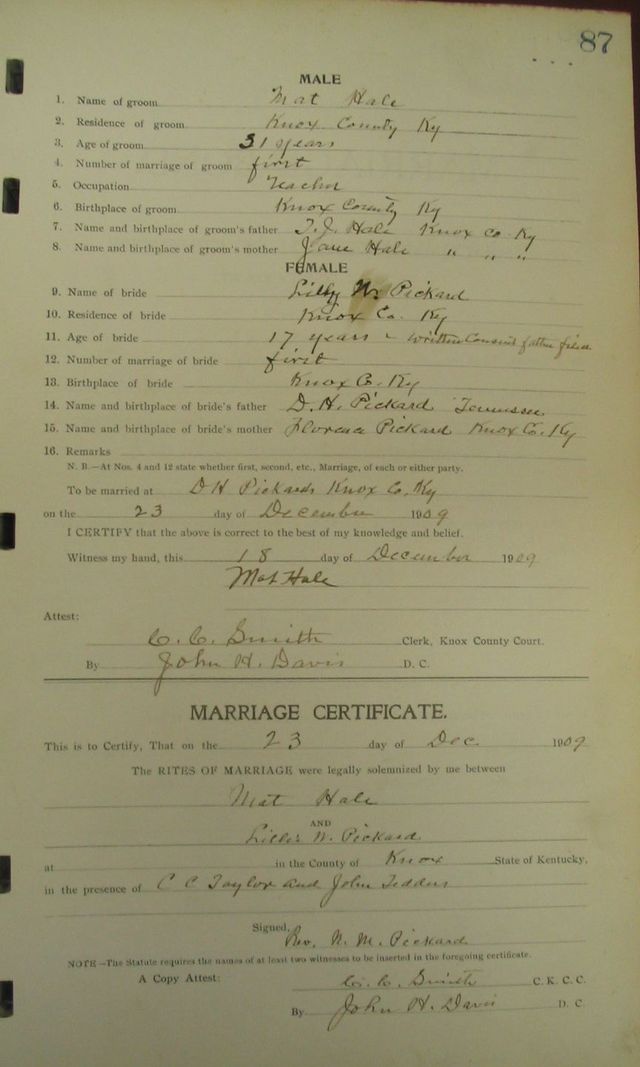 87
MALE
1. Name of groom Mat Hale
2. Residence of groom Knox County Ky
3. Age of groom 31 years
4. Number of marriage of groom first
5. Occupation Teacher
6. Birthplace of groom Knox County Ky
7. Name and birthplace of groom's father T. J. Hale Knox Co Ky
8. Name and birthplace of groom's mother Jane Hale " " "
FEMALE
9. Name of bride Lilly W. Pickard
10. Residence of bride Knox Co. Ky
11. Age of bride 17 years - written Consent father filed
12. Number of marriage of bride first
13. Birthplace of bride Knox Co. Ky
14. Name and birthplace of bride's father D. H. Pickard Tennessee
15. Name and birthplace of bride's mother Florence Pickard Knox Co. Ky
16. Remarks
N. B.—At Nos. 4 and 12 state whether first, second, etc., Marriage, of each or either party.
To be married at D H Pickards Knox Co. Ky
on the 23 day of December 1909
I CERTIFY that the above is correct to the best of my knowledge and belief.
Witness my hand, this 18 day of December 1909
Mat Hale
Attest:
C. C. Smith Clerk, Knox County Court.
By John H. Davis D. C.
MARRIAGE CERTIFICATE.
This is to Certify, That on the 23 day of Dec. 1909
The RITES OF MARRIAGE were legally solemnized by me between
Mat Hale
AND
Lillie W. Pickard
at in the County of Knox State of Kentucky,
in the presence of C C Taylor and John Tedders
Signed, Rev. N. M. Pickard
NOTE—The Statute requires the names of at least two witnesses to be inserted in the foregoing certificate.
A Copy Attest: C. C. Smith C. K. C. C.
By John H. Davis D. C.